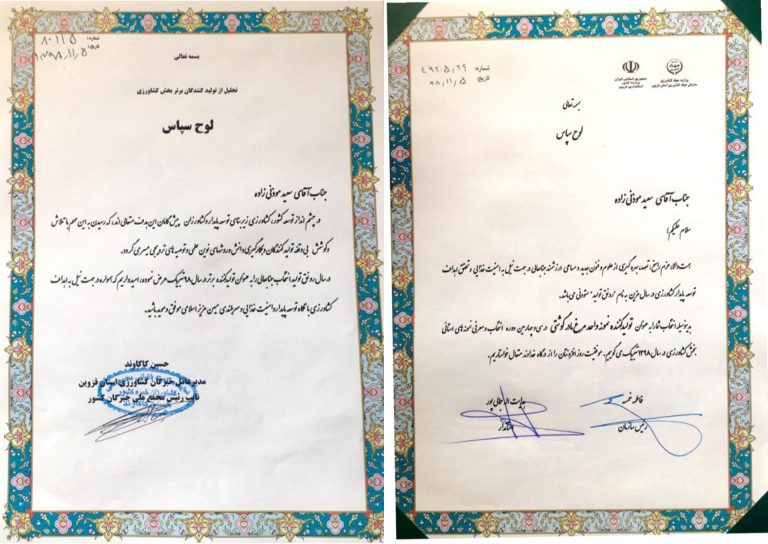 شماره: ۸۰.۱۱.۵
تاریخ: ۱۳۹۸.۱۱.۵
بسمه تعالی
تجلیل از تولید کنندگان برتر بخش کشاورزی
لوح سپاس
جناب آقای سعید موذنی زاده
در چشم انداز توسعه کشور؛ کشاورزی زیربنای توسعه پایدار و کشاورزان پیش گامان این هدف متعالی اند؛ که رسیدن به این مهم با تلاش
و کوشش بی وقفه تولید کنندگان و بکارگیری دانش و روشهای نوین علمی و توصیه های ترویجی میسر می گردد.
در سال رونق تولید انتخاب جنابعالی را به عنوان تولیدکننده برتر در سال ۹۸ تبریک عرض نموده، امیدواریم که همواره در جهت نیل به اهداف
کشاورزی با نگاه توسعه پایدار و امنیت غذایی و سربلندی میهن عزیز اسلامی موفق و موید باشید.
حسین کاکاوند
مدیرعامل خبرگان کشاورزی استان قزوین
نایب رئیس مجمع ملی خبرگان کشور
جمهوری اسلامی ایران
وزارت کشور
استانداری قزوین
وزارت جهاد کشاورزی
سازمان جهاد کشاورزی استان قزوین
شماره: ۴۹۲۰۵,۲۶
تاریخ: ۹۸,۱۱,۵
بسمه تعالی
لوح سپاس
جناب آقای سعید موذنی زاده
سلام علیکم؛
همت والا، عزم راسخ، تعهد، بهره گیری از علوم و فنون جدید و مساعی ارزشمند جنابعالی در جهت نیل به امنیت غذایی و تحقق اهداف
توسعه پایدار کشاورزی در سال مزین به نام "رونق تولید" ستودنی می باشد.
بدینوسیله انتخاب شما را به عنوان تولیدکننده نمونه واحد مرغ مادر گوشتی در سی و چهارمین دوره انتخاب و معرفی نمونه های استانی
بخش کشاورزی در سال ۱۳۹۸ تبریک می گوییم. موفقیت روز افزونتان را از درگاه خداوند متعال خواستاریم.
فاطمه خمسه
رئیس سازمان
هدایت اله جمالی پور
استاندار